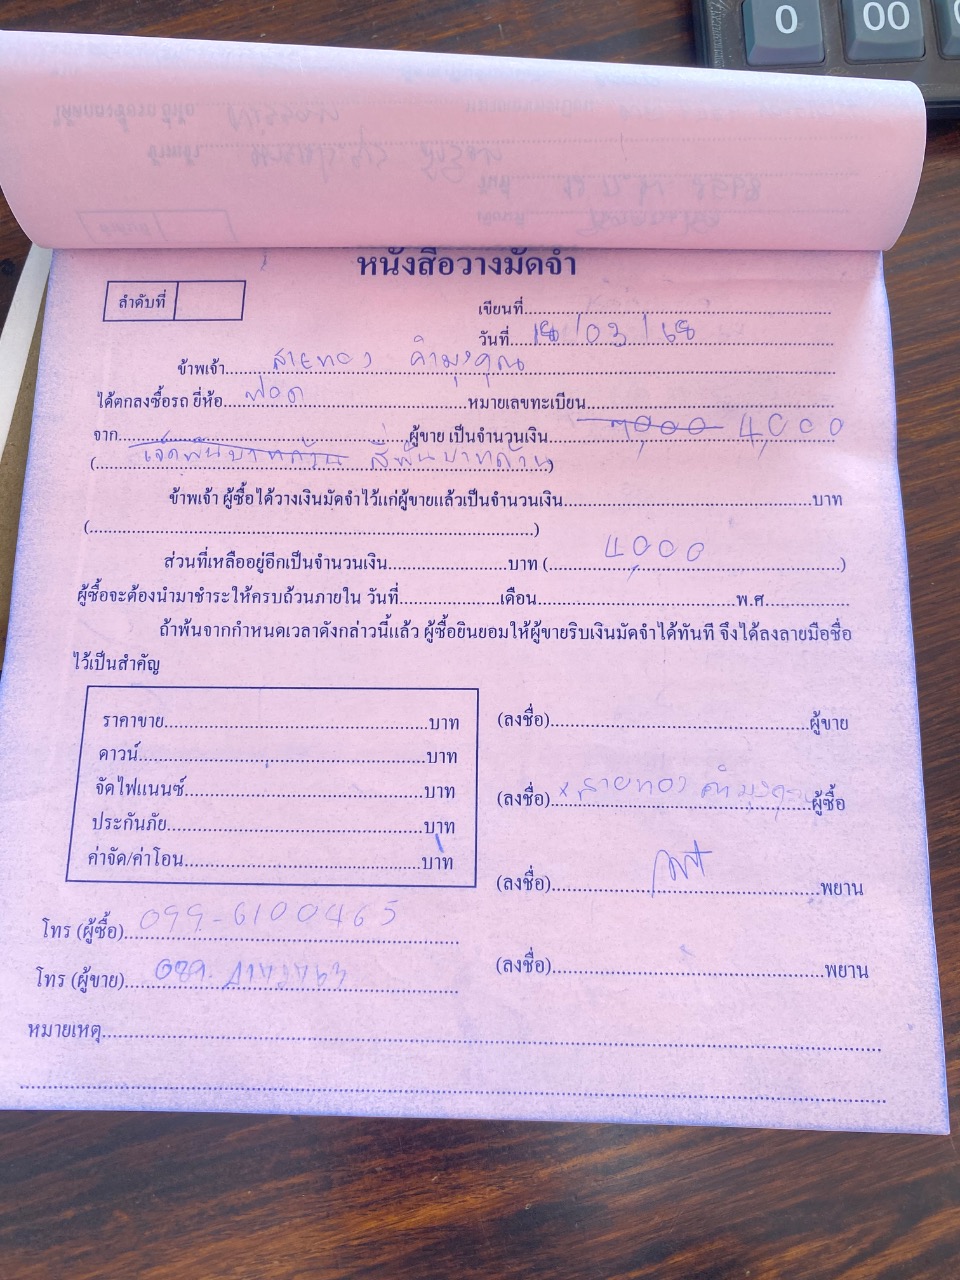 0 00 0
หนังสือวางมัดจำ
ลำดับที่
เขียนที่
วันที่ 18/03/68
ข้าพเจ้า สายทอง คำมุงคุณ
ได้ตกลงซื้อรถ ยี่ห้อ ฟอด หมายเลขทะเบียน
จาก ผู้ขาย เป็นจำนวนเงิน 7,000 4,000
( เจ็ดพันบาทถ้วน สี่พันบาทถ้วน )
ข้าพเจ้า ผู้ซื้อได้วางเงินมัดจำไว้แก่ผู้ขายแล้วเป็นจำนวนเงิน บาท
( )
ส่วนที่เหลืออยู่อีกเป็นจำนวนเงิน บาท ( 4,000 )
ผู้ซื้อจะต้องนำมาชำระให้ครบถ้วนภายใน วันที่ เดือน พ.ศ.
ถ้าพ้นจากกำหนดเวลาดังกล่าวนี้แล้ว ผู้ซื้อยินยอมให้ผู้ขายริบเงินมัดจำได้ทันที จึงได้ลงลายมือชื่อ
ไว้เป็นสำคัญ
ราคาขาย บาท
ดาวน์ บาท
จัดไฟแนนซ์ บาท
ประกันภัย บาท
ค่าจัด/ค่าโอน บาท
(ลงชื่อ) ผู้ขาย
(ลงชื่อ) × สายทอง คำมุงคุณ ผู้ซื้อ
(ลงชื่อ) พยาน
(ลงชื่อ) พยาน
โทร (ผู้ซื้อ) 099-6100465
โทร (ผู้ขาย) 089-
หมายเหตุ